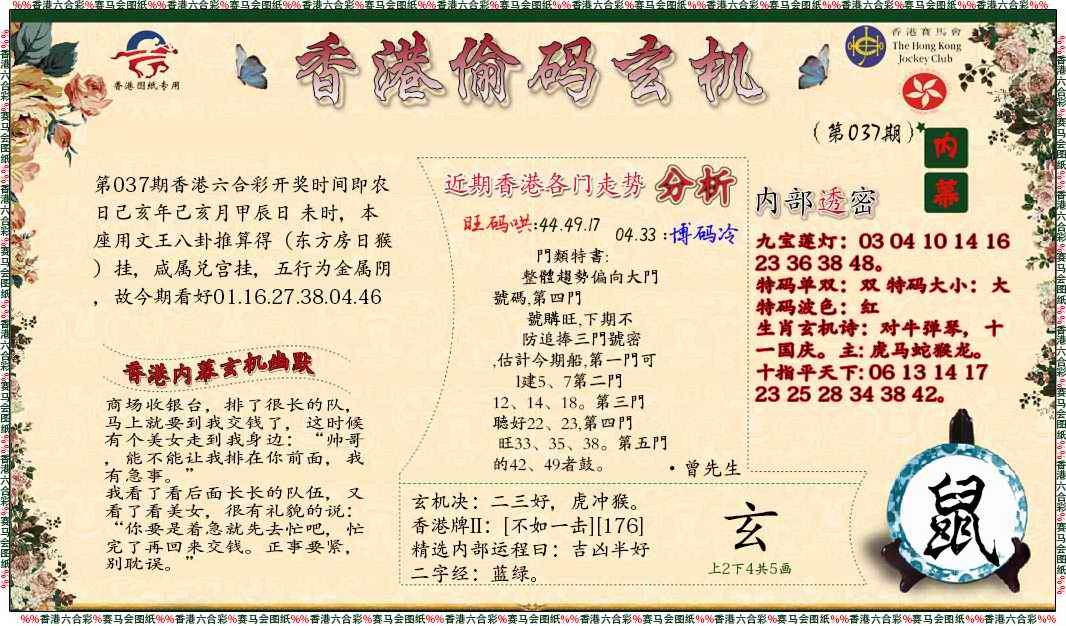 %%香港六合彩%赛马会图纸%%香港六合彩%赛马会图纸%%香港六合彩%赛马会图纸%%香港六合彩%赛马会图纸%%香港六合彩%赛马会图纸%%香港六合彩%赛马会图纸%%香港六合彩%%
香港图纸专用
香港偷码玄机
香港賽馬會
The Hong Kong
Jockey Club
(第037期)
内
幕
第037期香港六合彩开奖时间即农
日己亥年己亥月甲辰日 未时，本
座用文王八卦推算得（东方房日猴
）挂，咸属兑宫挂，五行为金属阴
，故今期看好01.16.27.38.04.46
香港内幕玄机幽默
商场收银台，排了很长的队，
马上就要到我交钱了，这时候
有个美女走到我身边：“帅哥
，能不能让我排在你前面，我
有急事。”
我看了看后面长长的队伍，又
看了看美女，很有礼貌的说：
“你要是着急就先去忙吧，忙
完了再回来交钱。正事要紧，
别耽误。”
近期香港各门走势 分析
旺码哄:44.49.17
04.33 :博码冷
門類特書:
整體趨勢偏向大門
號碼,第四門
號購旺,下期不
防追捧三門號密
,估計今期船,第一門可
1建5、7第二門
12、14、18。第三門
聽好22、23,第四門
旺33、35、38。第五門
的42、49者鼓。
·曾先生
内部透密
九宝莲灯：03 04 10 14 16
23 36 38 48。
特码单双：双 特码大小：大
特码波色：红
生肖玄机诗：对牛弹琴，十
一国庆。主: 虎马蛇猴龙。
十指平天下: 06 13 14 17
23 25 28 34 38 42。
玄机决：二三好，虎冲猴。
香港牌II：[不如一击][176]
精选内部运程曰：吉凶半好
二字经：蓝绿。
玄
上2下4共5画
鼠
%%香港六合彩%赛马会图纸%%香港六合彩%赛马会图纸%%香港六合彩%赛马会图纸%%香港六合彩%赛马会图纸%%香港六合彩%赛马会图纸%%香港六合彩%赛马会图纸%%香港六合彩%%